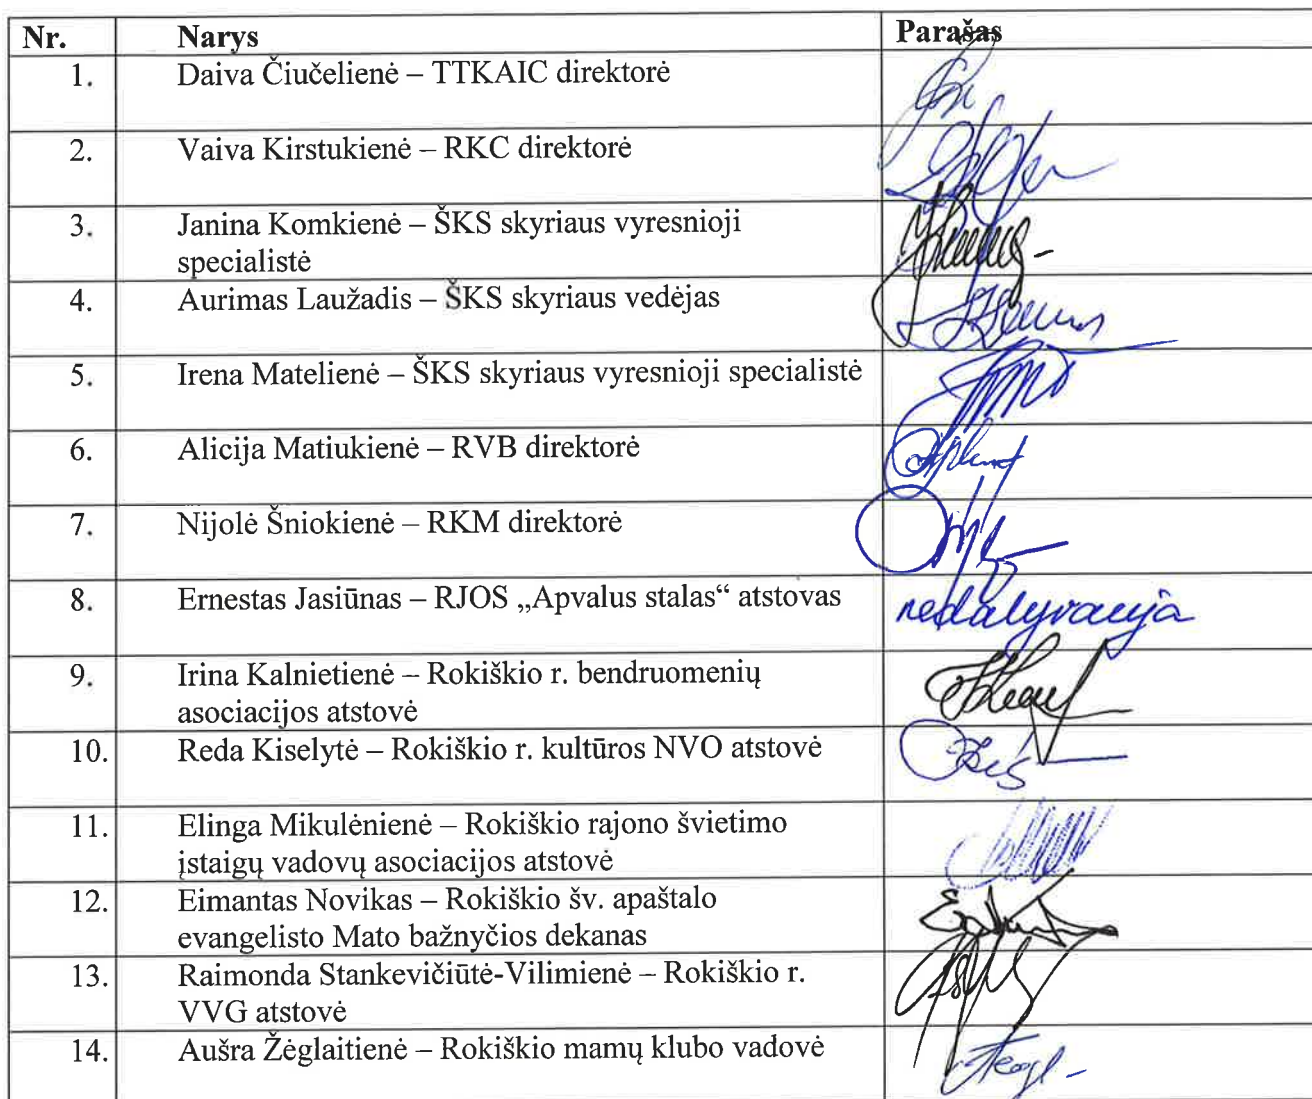 Nr. Narys Parašas
1. Daiva Čiučelienė – TTKAIC direktorė
2. Vaiva Kirstukienė – RKC direktorė
3. Janina Komkienė – ŠKS skyriaus vyresnioji
specialistė
4. Aurimas Laužadis – ŠKS skyriaus vedėjas
5. Irena Matelienė – ŠKS skyriaus vyresnioji specialistė
6. Alicija Matiukienė – RVB direktorė
7. Nijolė Šniokienė – RKM direktorė
8. Ernestas Jasiūnas – RJOS „Apvalus stalas“ atstovas nedalyvauja
9. Irina Kalnietienė – Rokiškio r. bendruomenių
asociacijos atstovė
10. Reda Kiselytė – Rokiškio r. kultūros NVO atstovė
11. Elinga Mikulėnienė – Rokiškio rajono švietimo
įstaigų vadovų asociacijos atstovė
12. Eimantas Novikas – Rokiškio šv. apaštalo
evangelisto Mato bažnyčios dekanas
13. Raimonda Stankevičiūtė-Vilimienė – Rokiškio r.
VVG atstovė
14. Aušra Žėglaitienė – Rokiškio mamų klubo vadovė